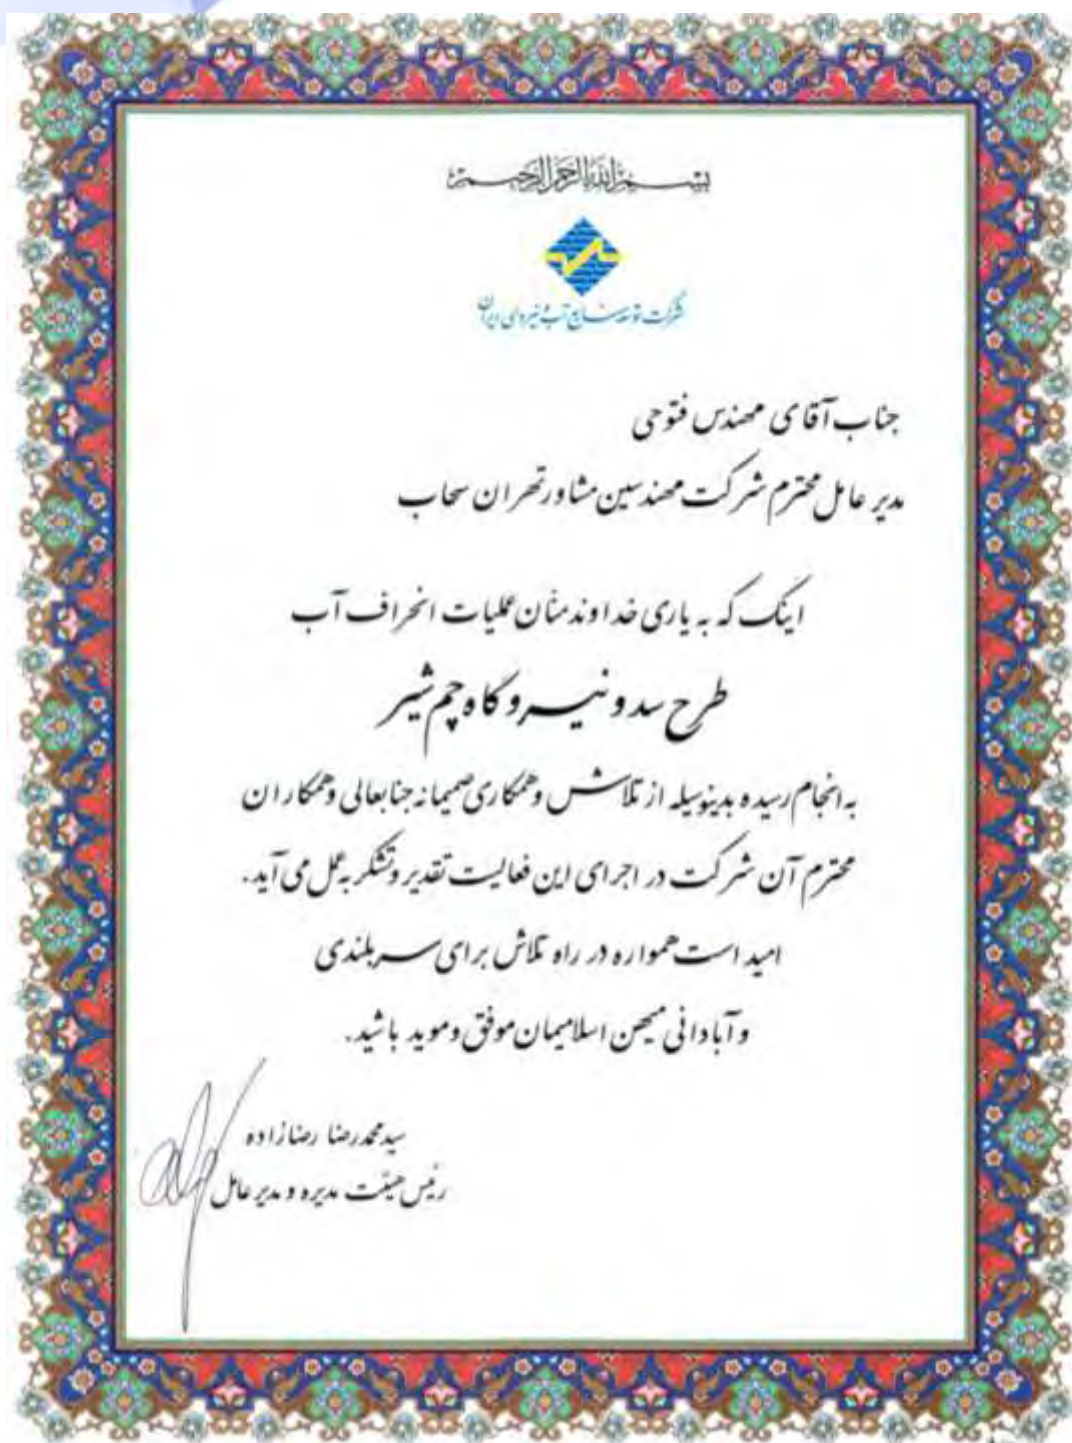 بسم الله الرحمن الرحیم
شرکت توسعه منابع آب و نیروی ایران
جناب آقای مهندس فتوحی
مدیر عامل محترم شرکت مهندسین مشاور تهران سحاب
اینک که به یاری خداوند منّان عملیات انحراف آب
طرح سد و نیروگاه چم شیر
به انجام رسیده بدینوسیله از تلاش و همکاری صمیمانه جنابعالی و همکاران
محترم آن شرکت در اجرای این فعالیت تقدیر و تشکر به عمل می آید.
امید است همواره در راه تلاش برای سربلندی
و آبادانی میهن اسلامیمان موفق و موید باشید.
سید محمدرضا رضازاده
رئیس هیئت مدیره و مدیر عامل